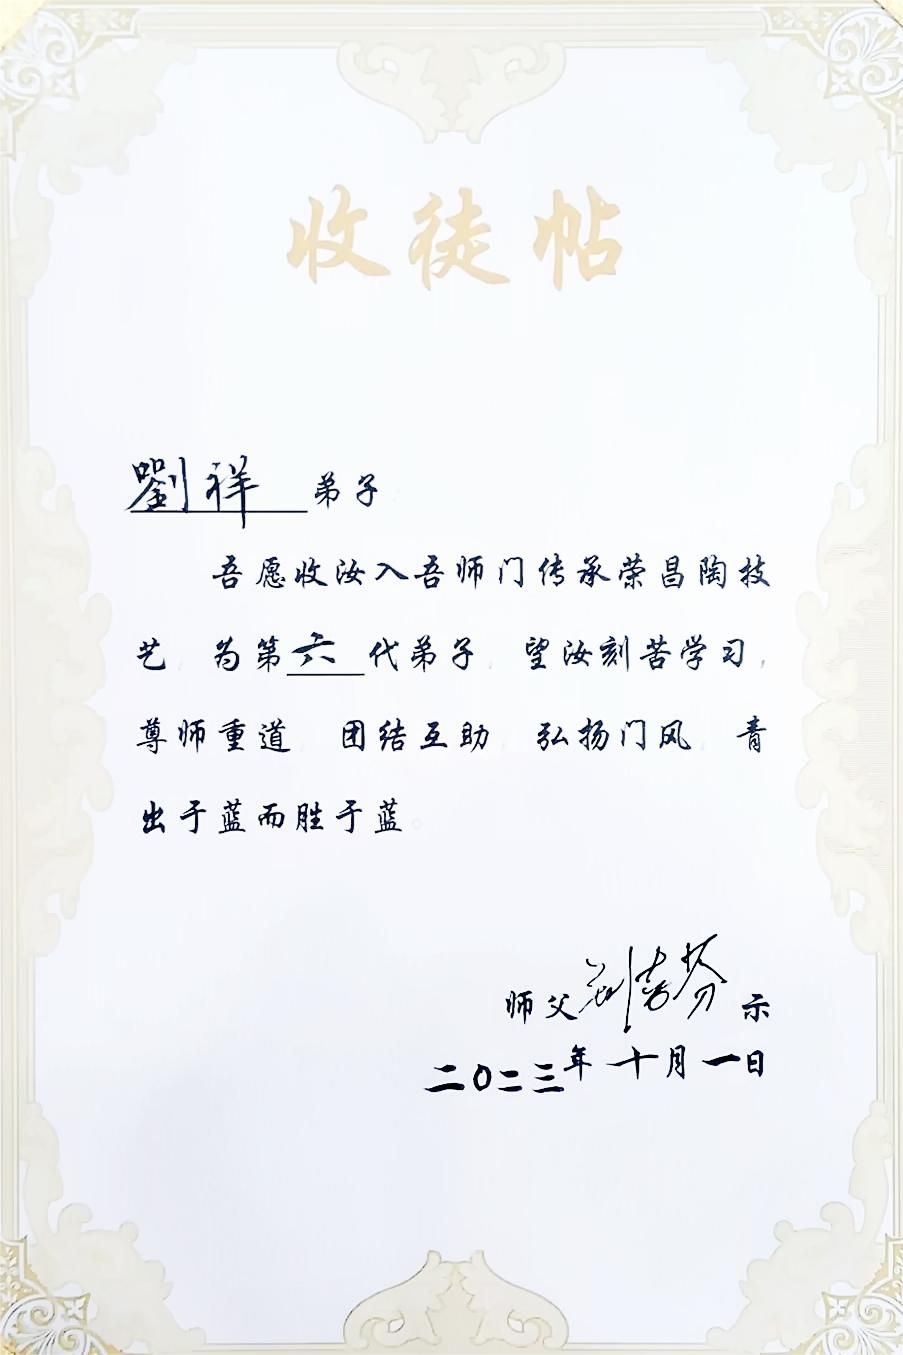 收徒帖
劉祥 弟子
吾愿收汝入吾师门传承荣昌陶技
艺，为第六代弟子，望汝刻苦学习，
尊师重道，团结互助，弘扬门风，青
出于蓝而胜于蓝。
师父 示
二〇二三年十月一日